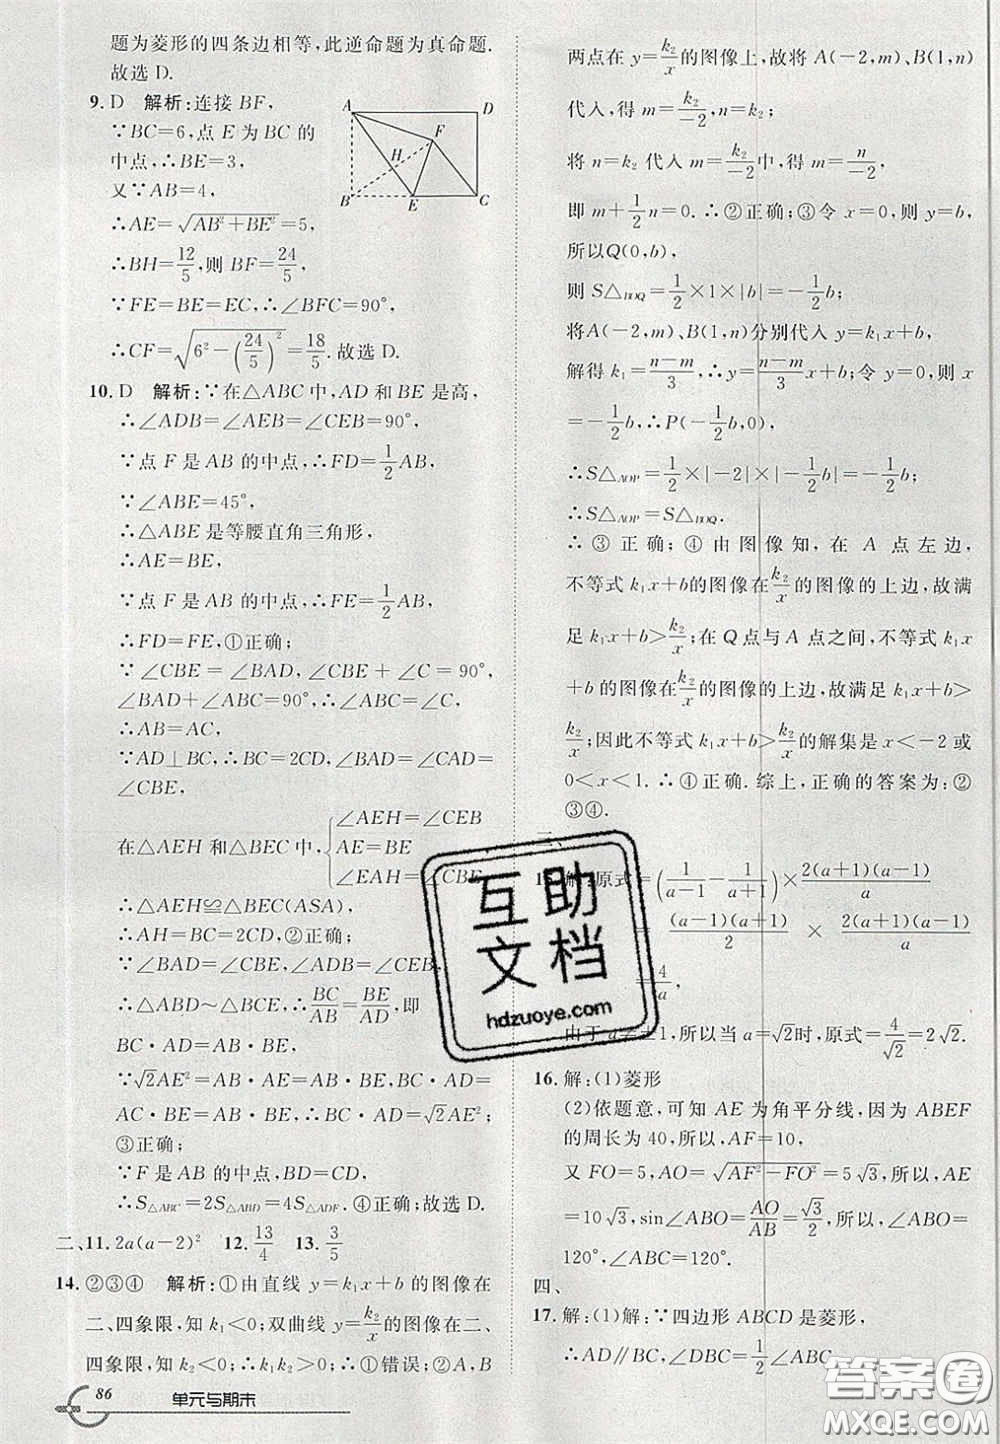 题为菱形的四条边相等,此逆命题为真命题.
故选 D.
9. D 解析:连接 BF,
∵BC=6,点 E 为 BC 的
中点,∴BE=3,
又∵AB=4,
∴AE=√(AB²+BE²)=5,
∴BH=12/5,则 BF=24/5,
∵FE=BE=EC,∴∠BFC=90°,
∴CF=√(6²-(24/5)²)=18/5.故选 D.
A D F H B E C
10. D 解析:∵在△ABC 中,AD 和 BE 是高,
∴∠ADB=∠AEB=∠CEB=90°,
∵点 F 是 AB 的中点,∴FD=1/2AB,
∵∠ABE=45°,
∴△ABE 是等腰直角三角形,
∴AE=BE,
∵点 F 是 AB 的中点,∴FE=1/2AB,
∴FD=FE,①正确;
∵∠CBE=∠BAD,∠CBE+∠C=90°,
∠BAD+∠ABC=90°,∴∠ABC=∠C,
∴AB=AC,
∵AD⊥BC,∴BC=2CD,∠BAD=∠CAD=
∠CBE,
在△AEH 和△BEC 中,{∠AEH=∠CEB
AE=BE
∠EAH=∠CBE
∴△AEH≌△BEC(ASA),
∴AH=BC=2CD,②正确;
∵∠BAD=∠CBE,∠ADB=∠CEB,
∴△ABD∽△BCE,∴BC/AB=BE/AD,即
BC·AD=AB·BE,
∵√2AE²=AB·AE=AB·BE,BC·AD=
AC·BE=AB·BE,∴BC·AD=√2AE²;
③正确;
∵F 是 AB 的中点,BD=CD,
∴S△ABC=2S△ABD=4S△ADF.④正确;故选 D.
二、11. 2a(a-2)² 12. 13/4 13. 3/5
14. ②③④ 解析:①由直线 y=k₁x+b 的图像在
二、四象限,知 k₁<0;双曲线 y=k₂/x 的图像在二、
四象限,知 k₂<0;∴k₁k₂>0,∴①错误;②A,B
86 单元与期末
两点在 y=k₂/x 的图像上,故将 A(-2,m)、B(1,n)
代入,得 m=k₂/-2,n=k₂;
将 n=k₂ 代入 m=k₂/-2中,得 m=n/-2,
即 m+1/2n=0.∴②正确;③令 x=0,则 y=b,
所以Q(0,b),
则 S△BOQ=1/2×1×|b|=-1/2b;
将A(-2,m)、B(1,n)分别代入 y=k₁x+b,
解得 k₁=n-m/3,∴y=n-m/3x+b;令 y=0,则 x
=-1/2b,∴P(-1/2b,0),
∴S△AOP=1/2×|-2|×|-1/2b|=-1/2b;
∴S△AOP=S△BOQ.
∴③正确;④由图像知,在 A 点左边,
不等式 k₁x+b的图像在k₂/x的图像的上边,故满
足 k₁x+b>k₂/x;在 Q 点与 A 点之间,不等式 k₁x
+b 的图像在k₂/x的图像的上边,故满足 k₁x+b>
k₂/x;因此不等式 k₁x+b>k₂/x的解集是 x<-2 或
0<x<1.∴④正确.综上,正确的答案为:②
③④.
三、
15.解:原式=(1/a-1-1/a+1)×2(a+1)(a-1)/a
(a-1)(a+1)/2×2(a+1)(a-1)/a
=4/a,
由于 a≠±1,所以当 a=√2时,原式=4/√2=2√2.
16. 解:(1)菱形
(2)依题意,可知 AE 为角平分线,因为 ABEF
的周长为 40,所以,AF=10,
又 FO=5,AO=√(AF²-FO²)=5√3,所以,AE
=10√3,sin∠ABO=AO/AB=√3/2,所以,∠ABO=
120°,∠ABC=120°.
四、
17. 解:(1)解:∵四边形 ABCD 是菱形,
∴AD∥BC,∠DBC=1/2∠ABC,
互助
文档
hdzuoye.com
答案圈
MXQE.COM